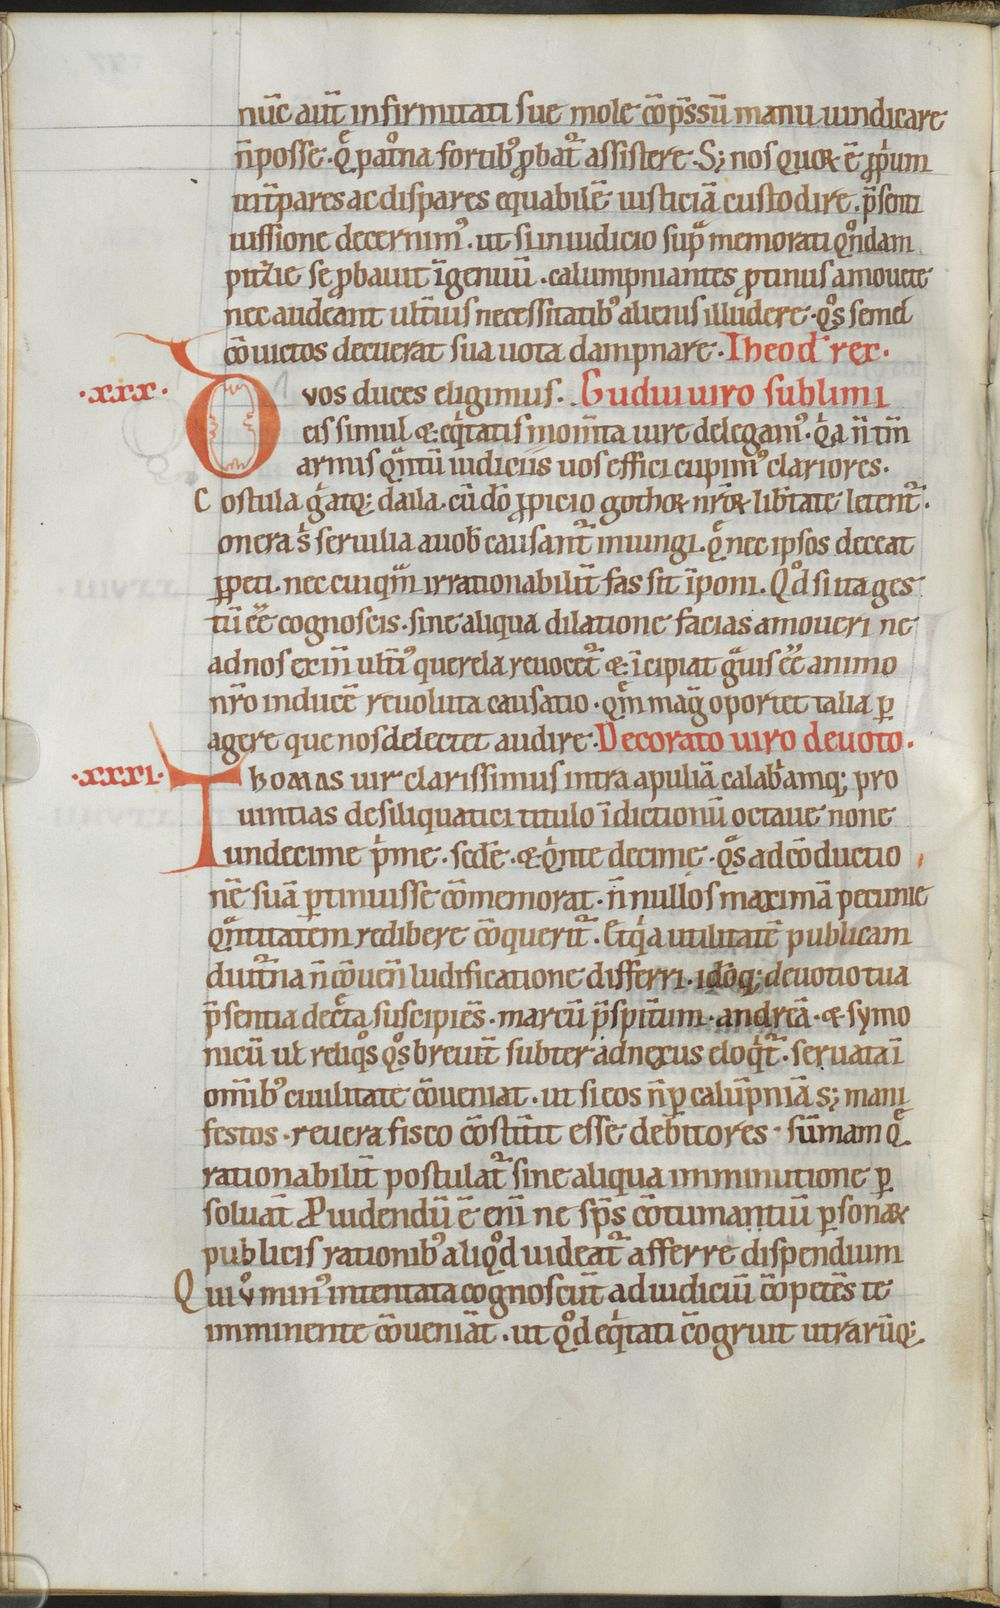 nūc aūt infirmitati sue mole cōp̄ssū manu uindicare
n̄ posse. q̄ paťna fortibꝰ ꝓbať assistere. S; nos quoꝝ ē ꝓp̓um
int̄ pares ac dispares equabilē iusticiā custodire. p̄senti
iussione decernimꝰ. ut si in iudicio sup̄ memorati qͦndam
pitzie se ꝓbauit īgenuū. calumpniantes ꝓtinus amouete
nec audeant ult̓ius necessitatibꝰ alienis illudere. qͦs semel
cōuictos decuerat sua uota dampnare. Theod̄ rex.
.xxx. Quos duces eligimus. Gudui uiro sublimi
eis simul ⁊ eq̓tatis mom̄ta iure delegamꝰ. q̓a n̄ tm̄
armis qᷓntū iudiciis uos effici cupimꝰ clariores.
Costula g̓ atq; daila. cū dō ꝓpicio gothoꝝ nr̄oꝝ lib̄tate letent̓.
onera s̓ seruilia a uob̄ causant̓ iniungi. q̄ nec ipsos deceat
ꝑpeti. nec cuiqᷓm irrationabilit̄ fas sit īponi. Qͦd si ita ges
tū ēē cognoscis. sine aliqua dilatione facias amoueri ne
ad nos exin̄ ult̓iꝰ querela reuocet̓ ⁊ īcipiat gᷓuis ēē animo
nr̄o inducē reuoluta causatio. qm̄ mag̓ oportet talia ꝑ
agere que nos delectet audire. Decorato uiro deuoto.
.xxxi. Thomas uir clarissimus intra apuliā calab̓amq; pro
uintias de siliquatici titulo īdictionū octaue none
undecime p̓me. scdē. ⁊ q̓nte decime. qͣs ad cōductio
nē suā ꝑtinuisse cōmemorat. n̄nullos maximā pecunie
qᷓntitatem redibere cōquerit̓. Et q̓a utilitatē publicam
diut̓na n̄ cōuen̄ ludificatione differri. idōq; deuotio tua
p̄sentia dec̄ta suscipiēs. marcū p̄spit̄um. andreā. ⁊ symo
nicū ut reliqͦs qͦs breuit̄ subter adnexus eloq̓t̓. seruata ī
omībꝰ ciuilitate cōueniat. ut si eos n̄ ꝑ calūpniā s; mani
festos. reuera fisco cōstit̓it esse debitores. sūmam q̄
rationabilit̄ postulat̓ sine aliqua imminutione ꝑ
soluāt. Puidendū ē enī ne sp̄s cōtumantiū ꝑsonaꝝ
publicis rationibꝰ aliqͦd uideat̓ afferre dispendium
Qui uͦ minꝰ intentata cognoscūt ad iudiciū cōpetēs te
imminente cōueniāt. ut qͦd eq̓tati cōgruit utrarūq;.